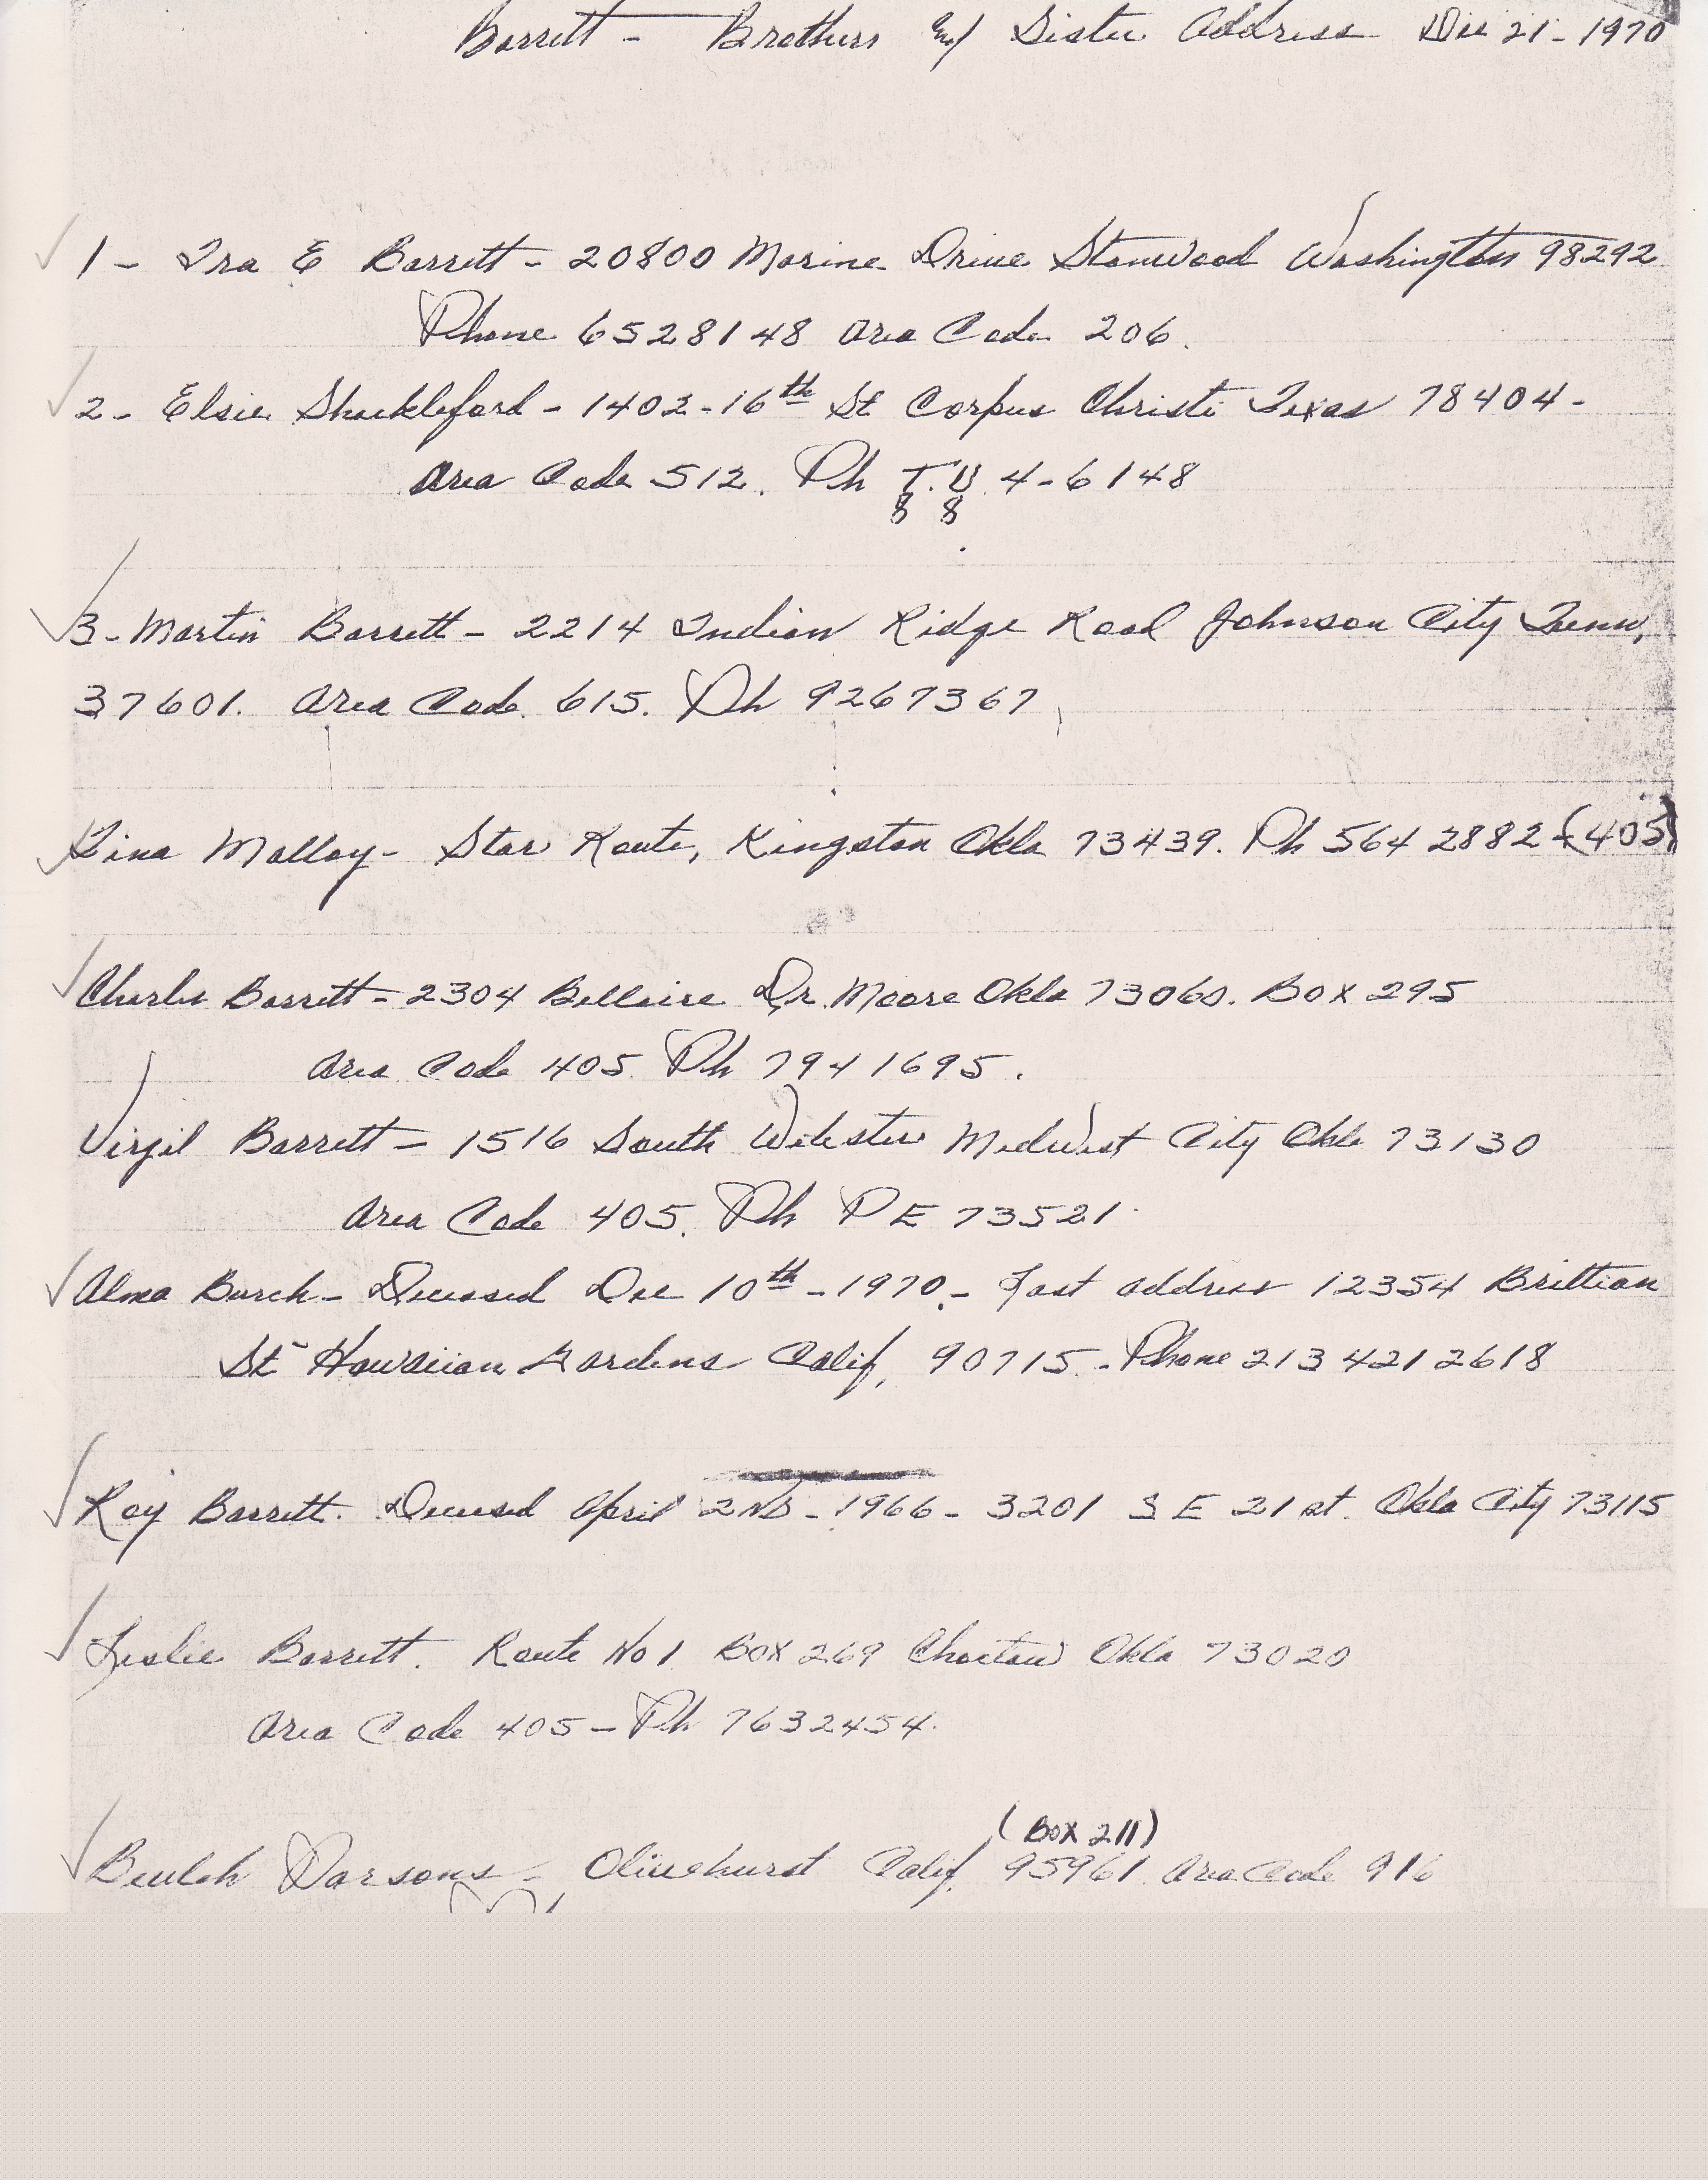 Barrett - Brothers and Sister Address Dec 21 - 1970
1 - Ira E Barrett - 20800 Marine Drive Stanwood Washington 98292
Phone 6528148 Area Code 206.
2 - Elsie Shackleford - 1402 - 16th St Corpus Christi Texas 78404 -
Area Code 512. Ph T.U. 4-6148
8 8
3 - Martin Barrett - 2214 Indian Ridge Road Johnson City Tenn,
37601. Area Code 615. Ph 9267367
Tina Malloy - Star Route, Kingston Okla 73439. Ph 564 2882 - (405)
Charlie Barrett - 2304 Bellaire Dr. Moore Okla 73060. Box 295
Area Code 405 Ph 794 1695.
Virgil Barrett - 1516 South Webster Midwest City Okla 73130
Area Code 405. Ph PE 73521
Alma Burch - Deceased Dec 10th - 1970. - Last address 12354 Brittian
St Hawaiian Gardens Calif, 90715 - Phone 213 421 2618
Roy Barrett. Deceased April 2nd - 1966 - 3201 S E 21 st. Okla City 73115
Leslie Barrett. Route No 1 Box 269 Choctaw Okla 73020
Area Code 405 - Ph 7632454.
(Box 211)
Beulah Parsons - Olivehurst Calif. 95961 Area Code 916